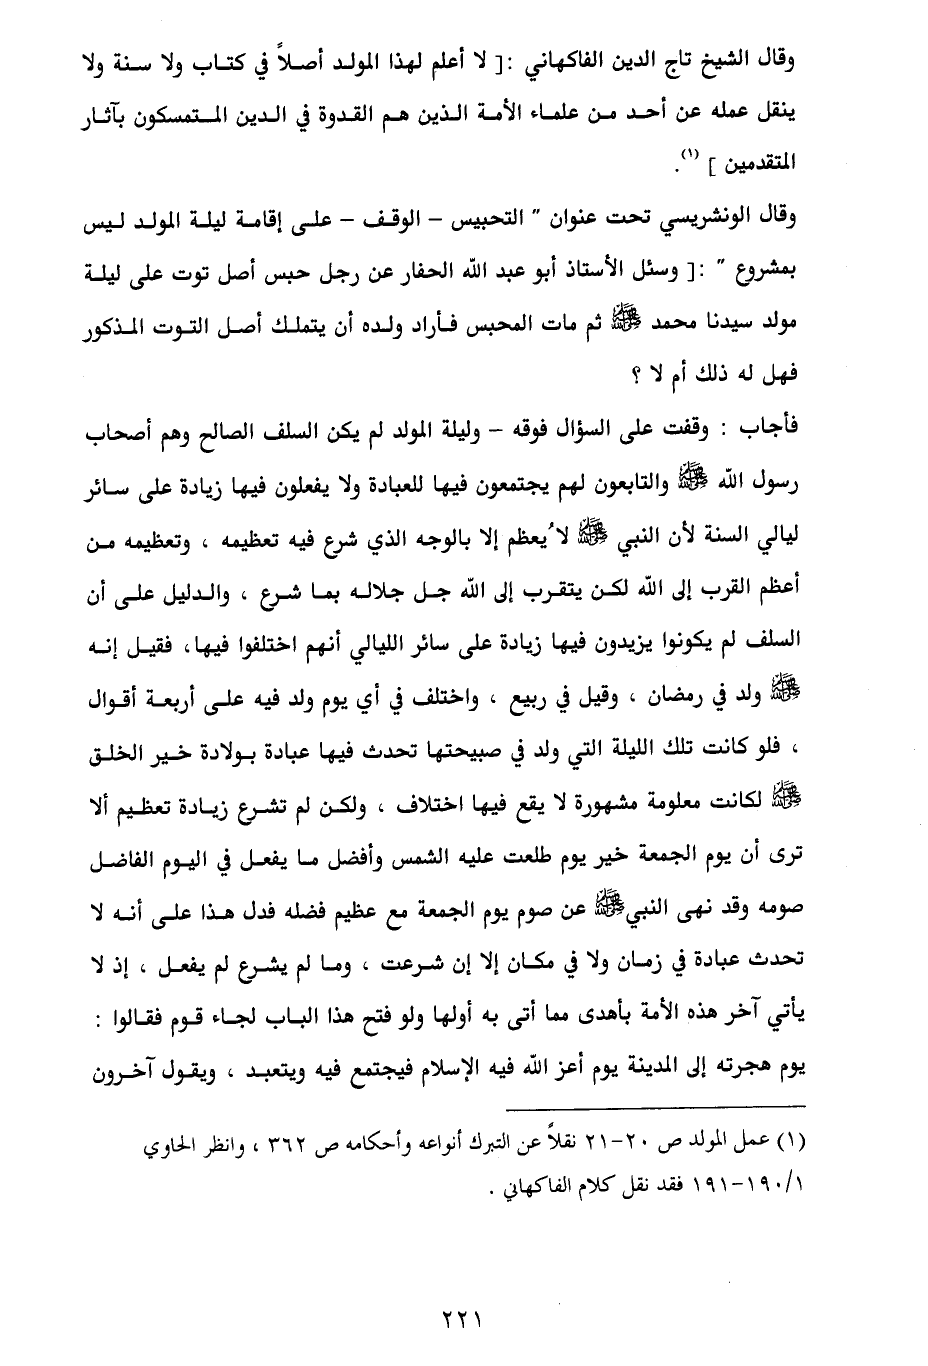 وقال الشيخ تاج الدين الفاكهاني :[ لا أعلم لهذا المولد أصلاً في كتاب ولا سنة ولا
ينقل عمله عن أحد من علماء الأمة الذين هم القدوة في الدين المتمسكون بآثار
المتقدمين ] (١).
وقال الونشريسي تحت عنوان " التحبيس – الوقف – على إقامة ليلة المولد ليس
بمشروع " :[ وسئل الأستاذ أبو عبد الله الحفار عن رجل حبس أصل توت على ليلة
مولد سيدنا محمد ﷺ ثم مات المحبس فأراد ولده أن يتملك أصل التوت المذكور
فهل له ذلك أم لا ؟
فأجاب : وقفت على السؤال فوقه – وليلة المولد لم يكن السلف الصالح وهم أصحاب
رسول الله ﷺ والتابعون لهم يجتمعون فيها للعبادة ولا يفعلون فيها زيادة على سائر
ليالي السنة لأن النبي ﷺ لا يُعظم إلا بالوجه الذي شرع فيه تعظيمه ، وتعظيمه من
أعظم القرب إلى الله لكن يتقرب إلى الله جل جلاله بما شرع ، والدليل على أن
السلف لم يكونوا يزيدون فيها زيادة على سائر الليالي أنهم اختلفوا فيها، فقيل إنه
ﷺ ولد في رمضان ، وقيل في ربيع ، واختلف في أي يوم ولد فيه على أربعة أقوال
، فلو كانت تلك الليلة التي ولد في صبيحتها تحدث فيها عبادة بولادة خير الخلق
ﷺ لكانت معلومة مشهورة لا يقع فيها اختلاف ، ولكن لم تشرع زيادة تعظيم ألا
ترى أن يوم الجمعة خير يوم طلعت عليه الشمس وأفضل ما يفعل في اليوم الفاضل
صومه وقد نهى النبي ﷺ عن صوم يوم الجمعة مع عظيم فضله فدل هذا على أنه لا
تحدث عبادة في زمان ولا في مكان إلا إن شرعت ، وما لم يشرع لم يفعل ، إذ لا
يأتي آخر هذه الأمة بأهدى مما أتى به أولها ولو فتح هذا الباب لجاء قوم فقالوا :
يوم هجرته إلى المدينة يوم أعز الله فيه الإسلام فيجتمع فيه ويتعبد ، ويقول آخرون
(١) عمل المولد ص ٢٠-٢١ نقلاً عن التبرك أنواعه وأحكامه ص ٣٦٢ ، وانظر الحاوي
١/١٩٠-١٩١ فقد نقل كلام الفاكهاني .
٢٢١